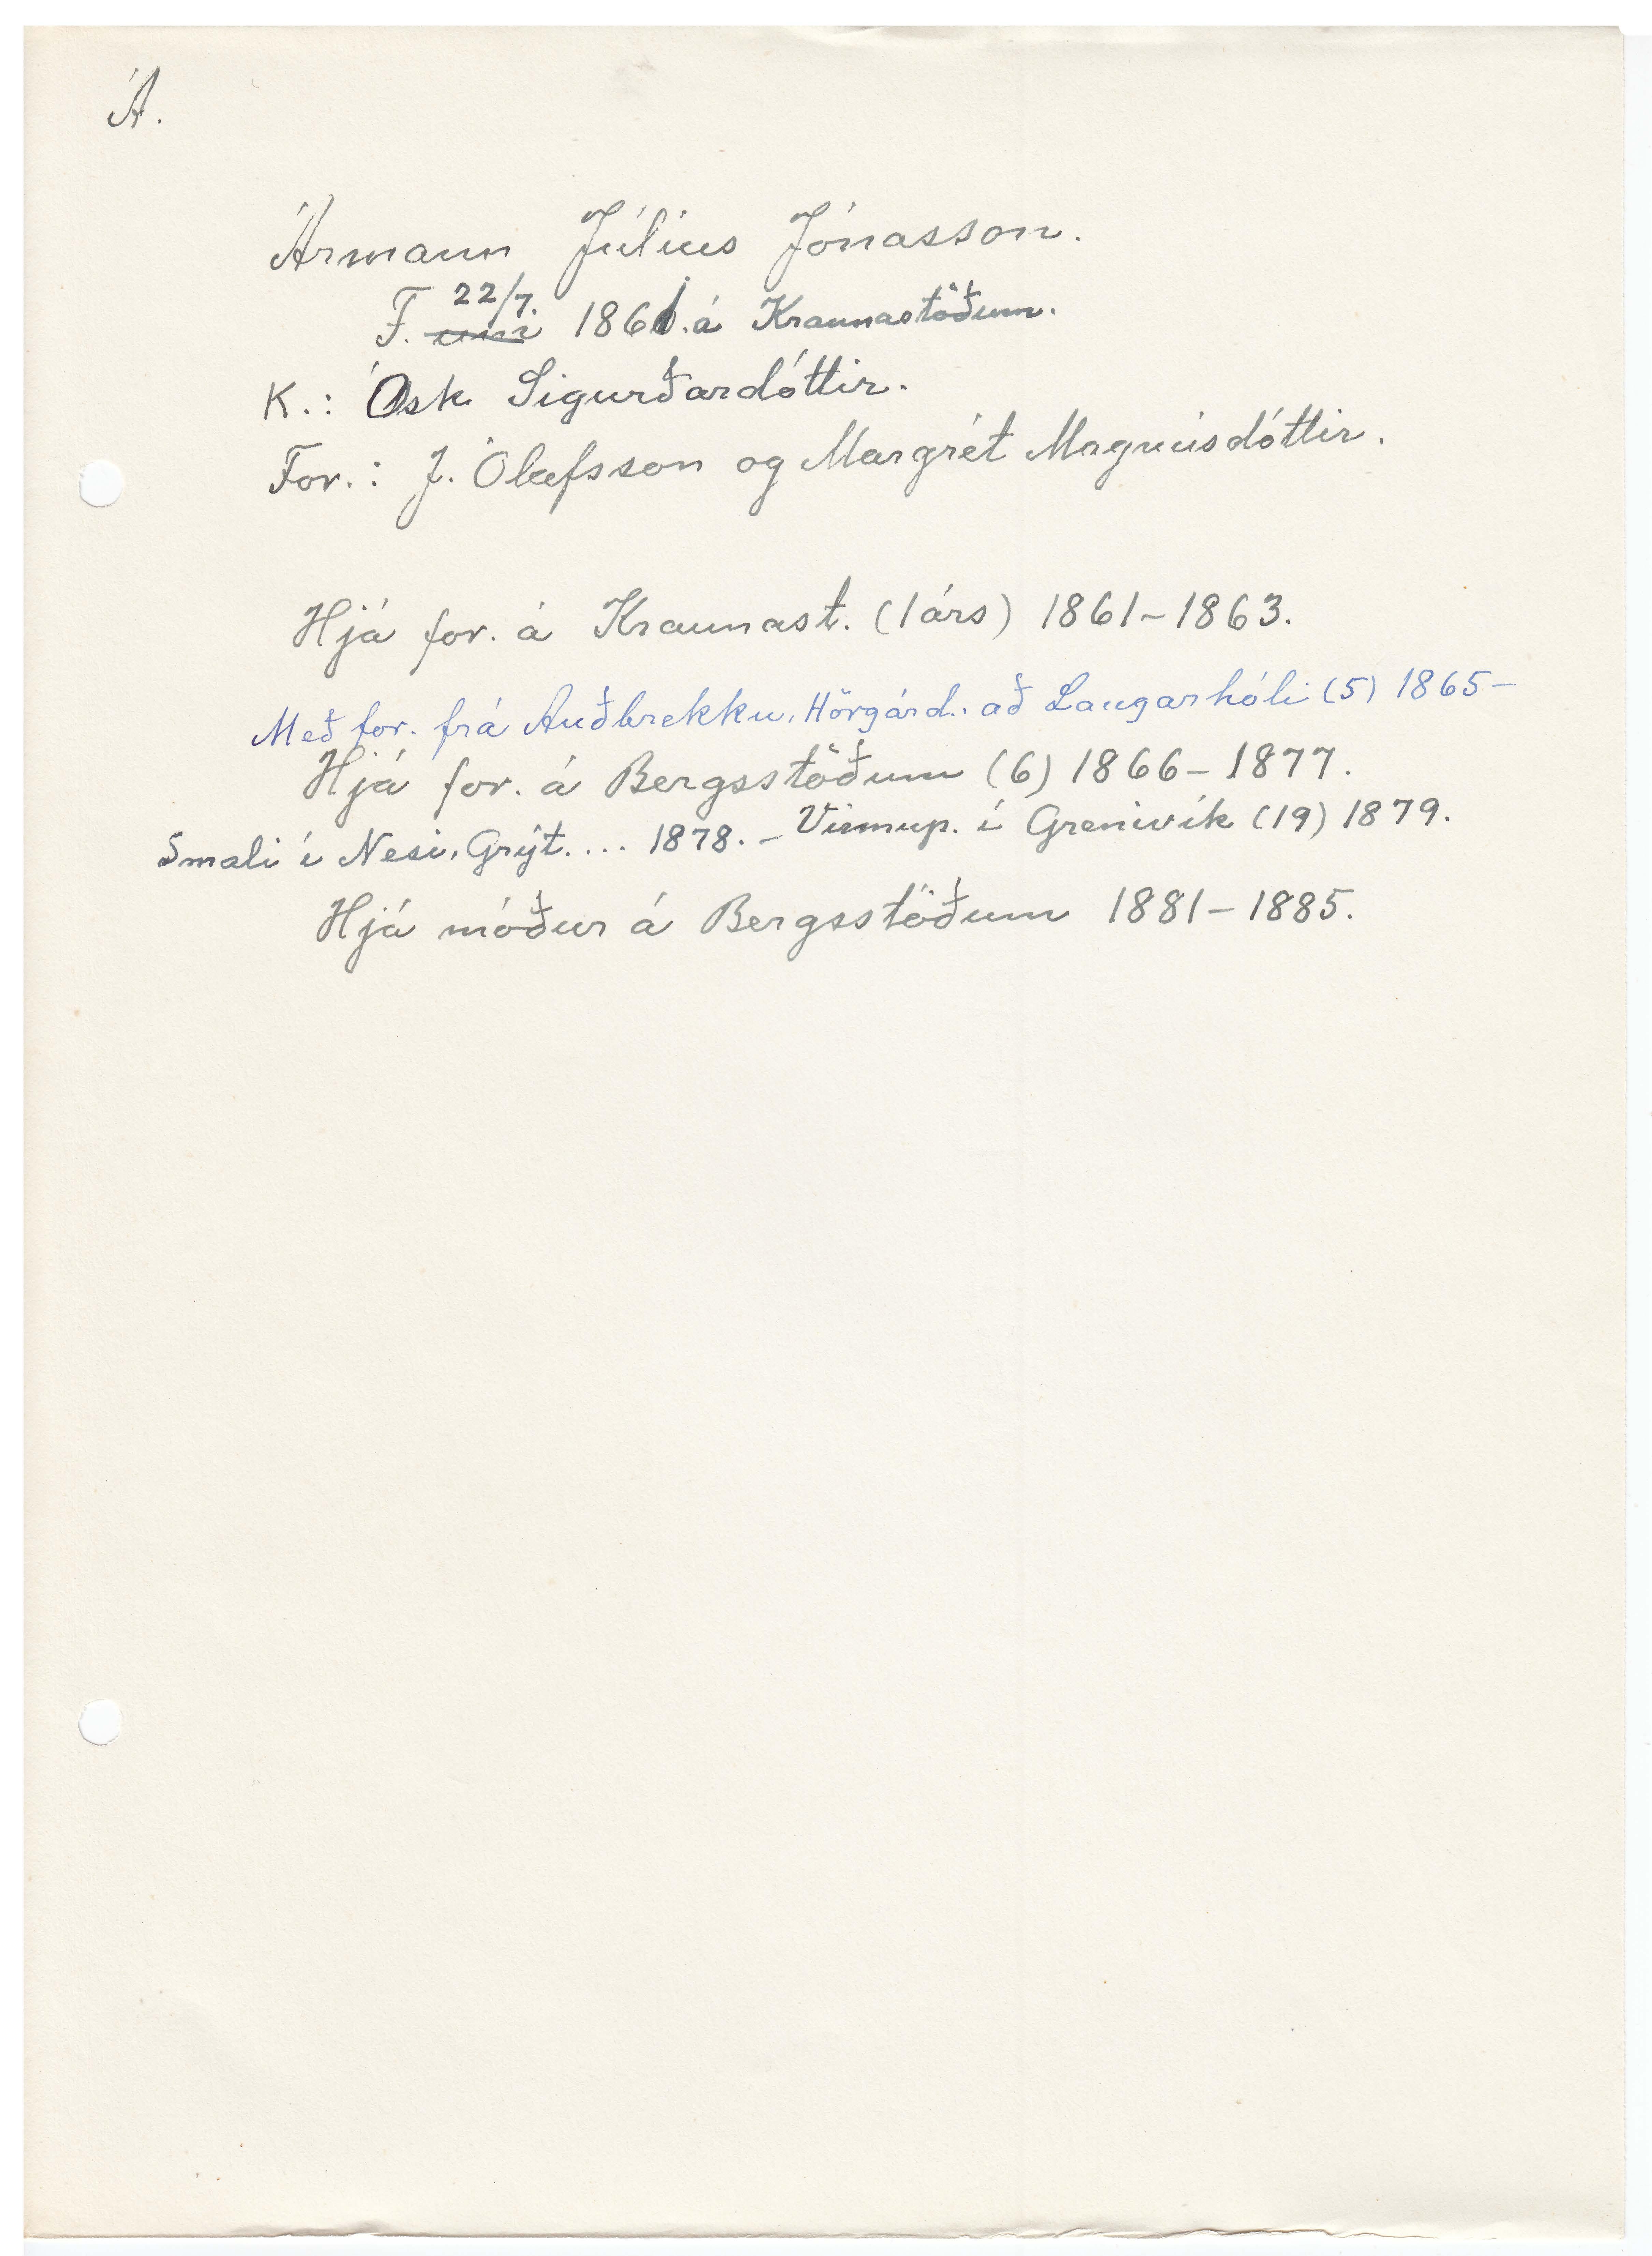 Á.
Ármann Júlíus Jónasson.
F. 22/7. 1861. á Kraunastöðum.
K.: Ósk Sigurðardóttir.
For.: J. Ólafsson og Margrét Magnúsdóttir.
Hjá for. á Kraunast. (1 árs) 1861-1863.
Með for. frá Auðbrekku, Hörgárd. að Laugarhóli (5) 1865-
Hjá for. á Bergsstöðum (6) 1866-1877.
Smali í Nesi, Grýt.... 1878. - Vinnup. í Grenivík (19) 1879.
Hjá móður á Bergsstöðum 1881-1885.